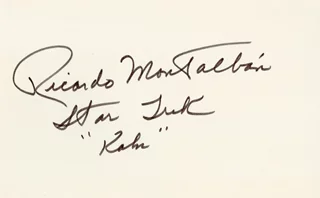 Ricardo Montalbán
Star Trek
"Kahn"